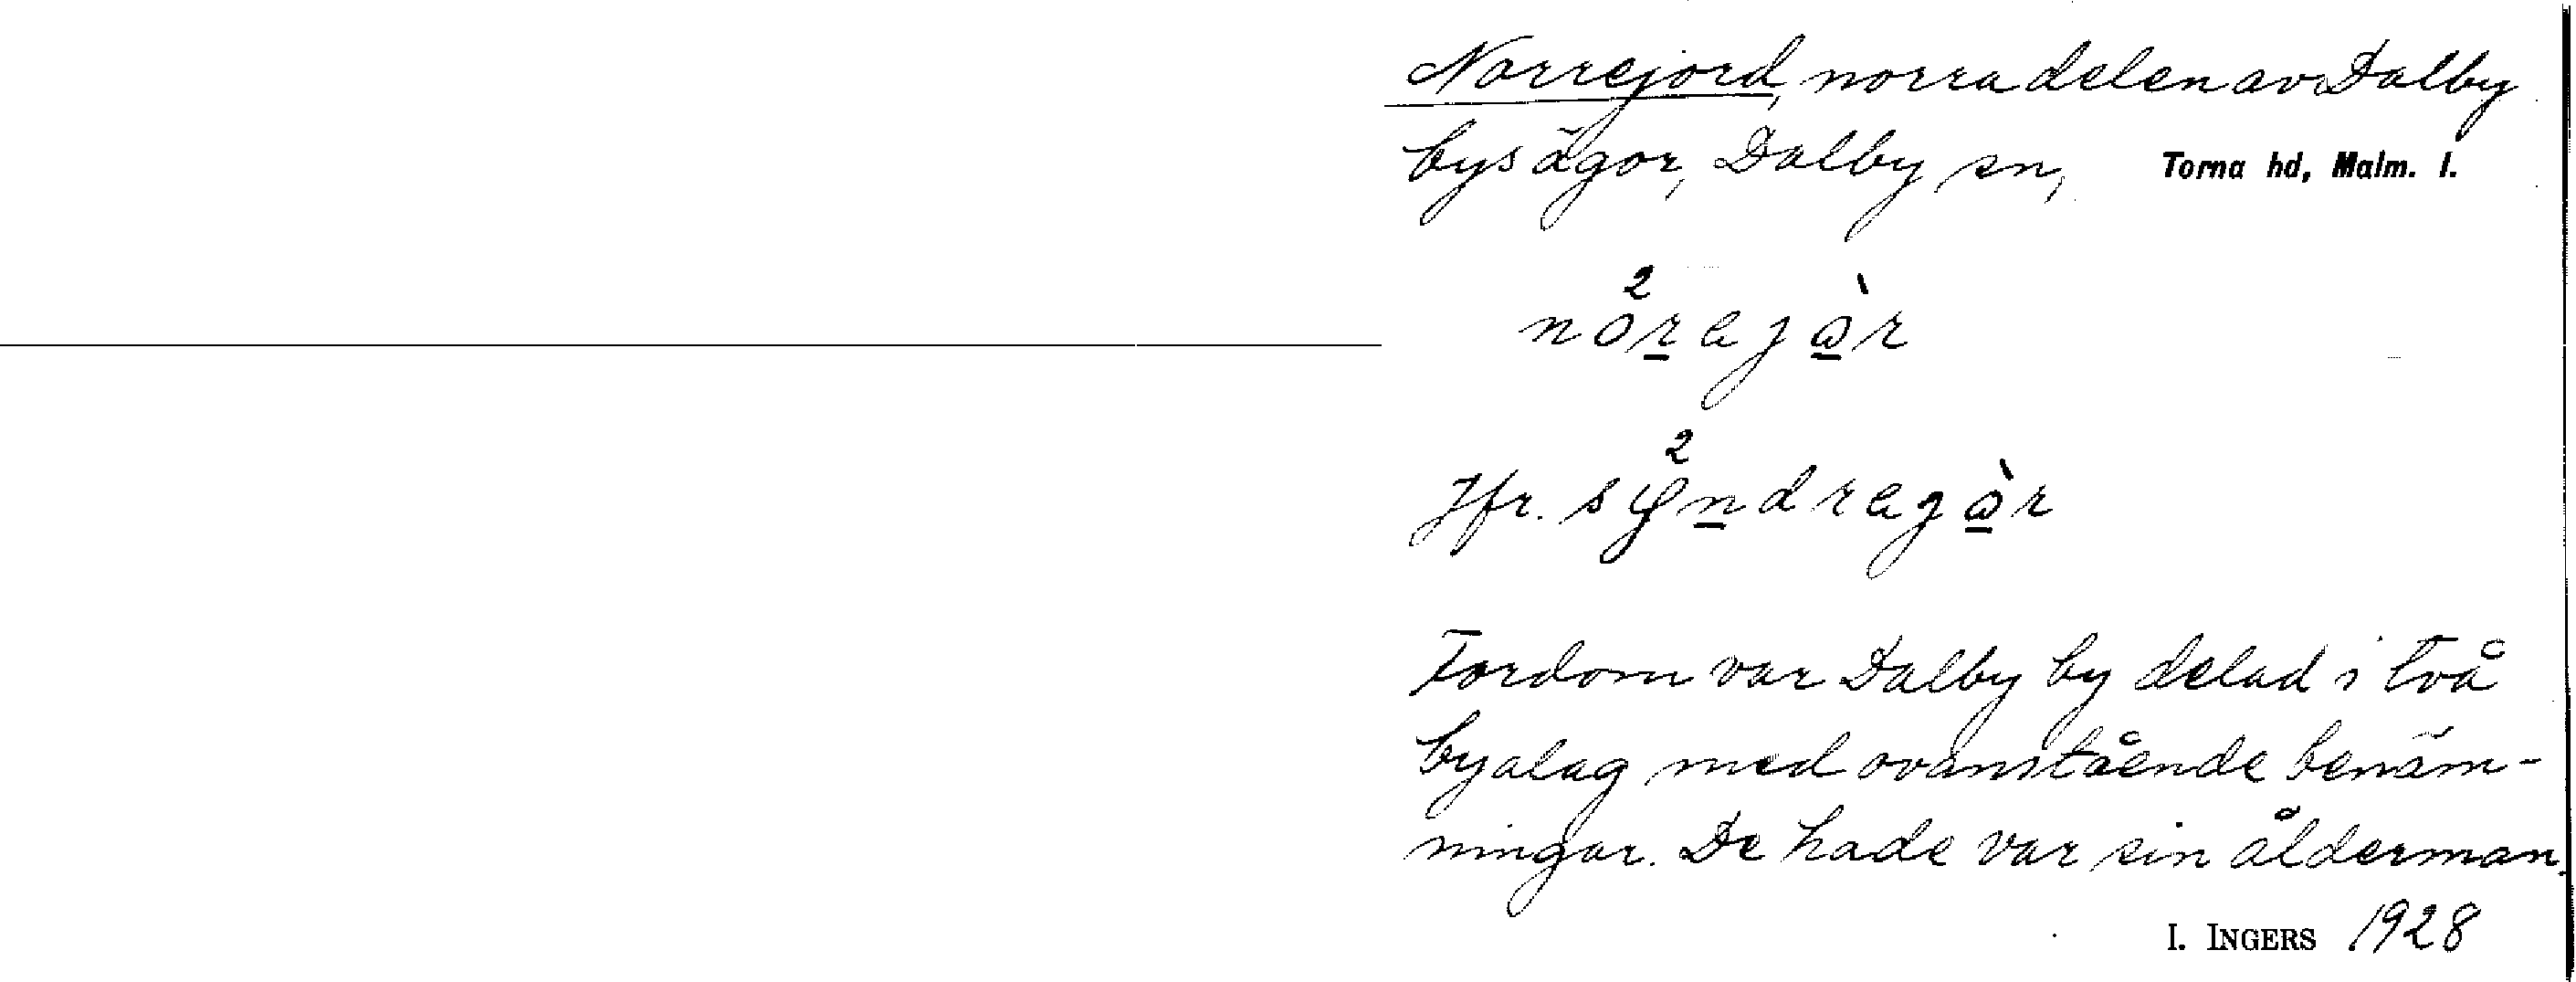 Norrejord, norra delen av Dalby
bys ägor, Dalby sn, Torna hd, Malm. l.
Jfr.
Fordom var Dalby by delad i två
byalag med ovanstående benäm-
ningar. De hade var sin ålderman.
I. INGERS 1928